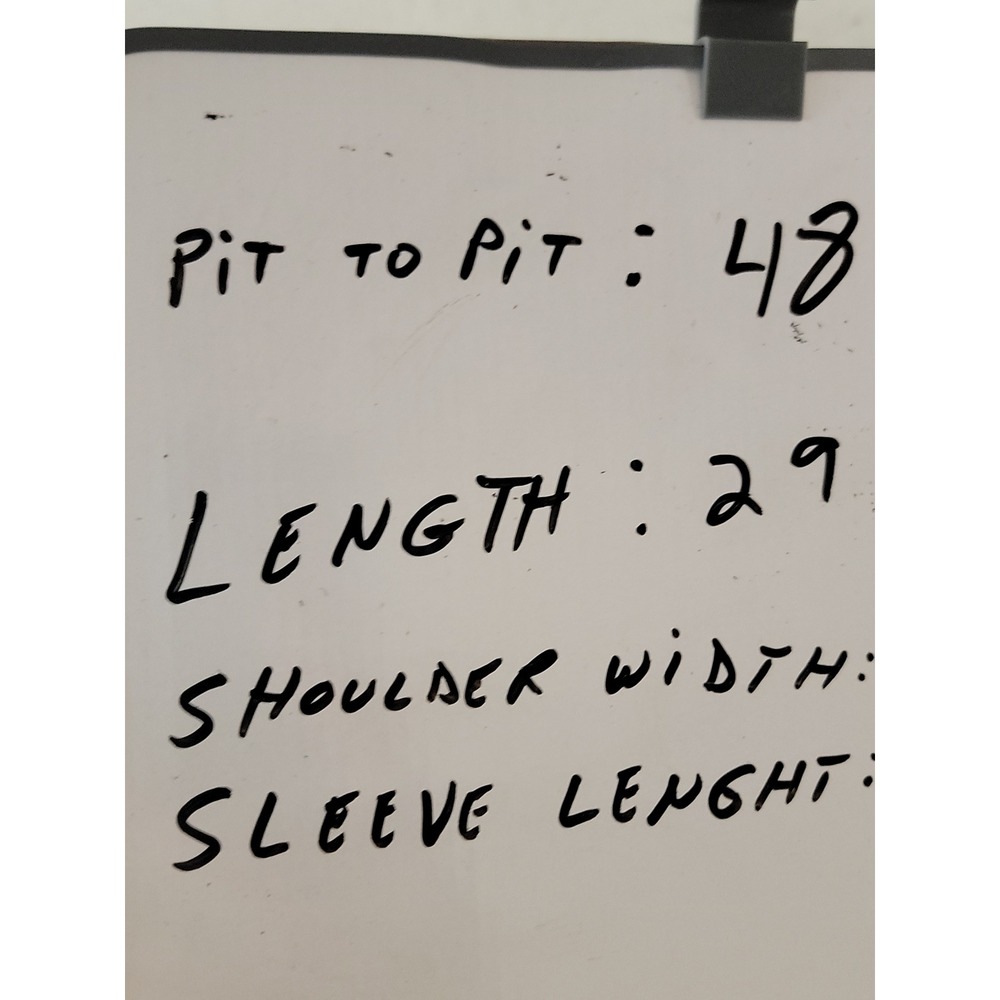 PiT TO PiT: 48
LENGTH: 29
SHOULDER WiDTH:
SLEEVE LENGHT: